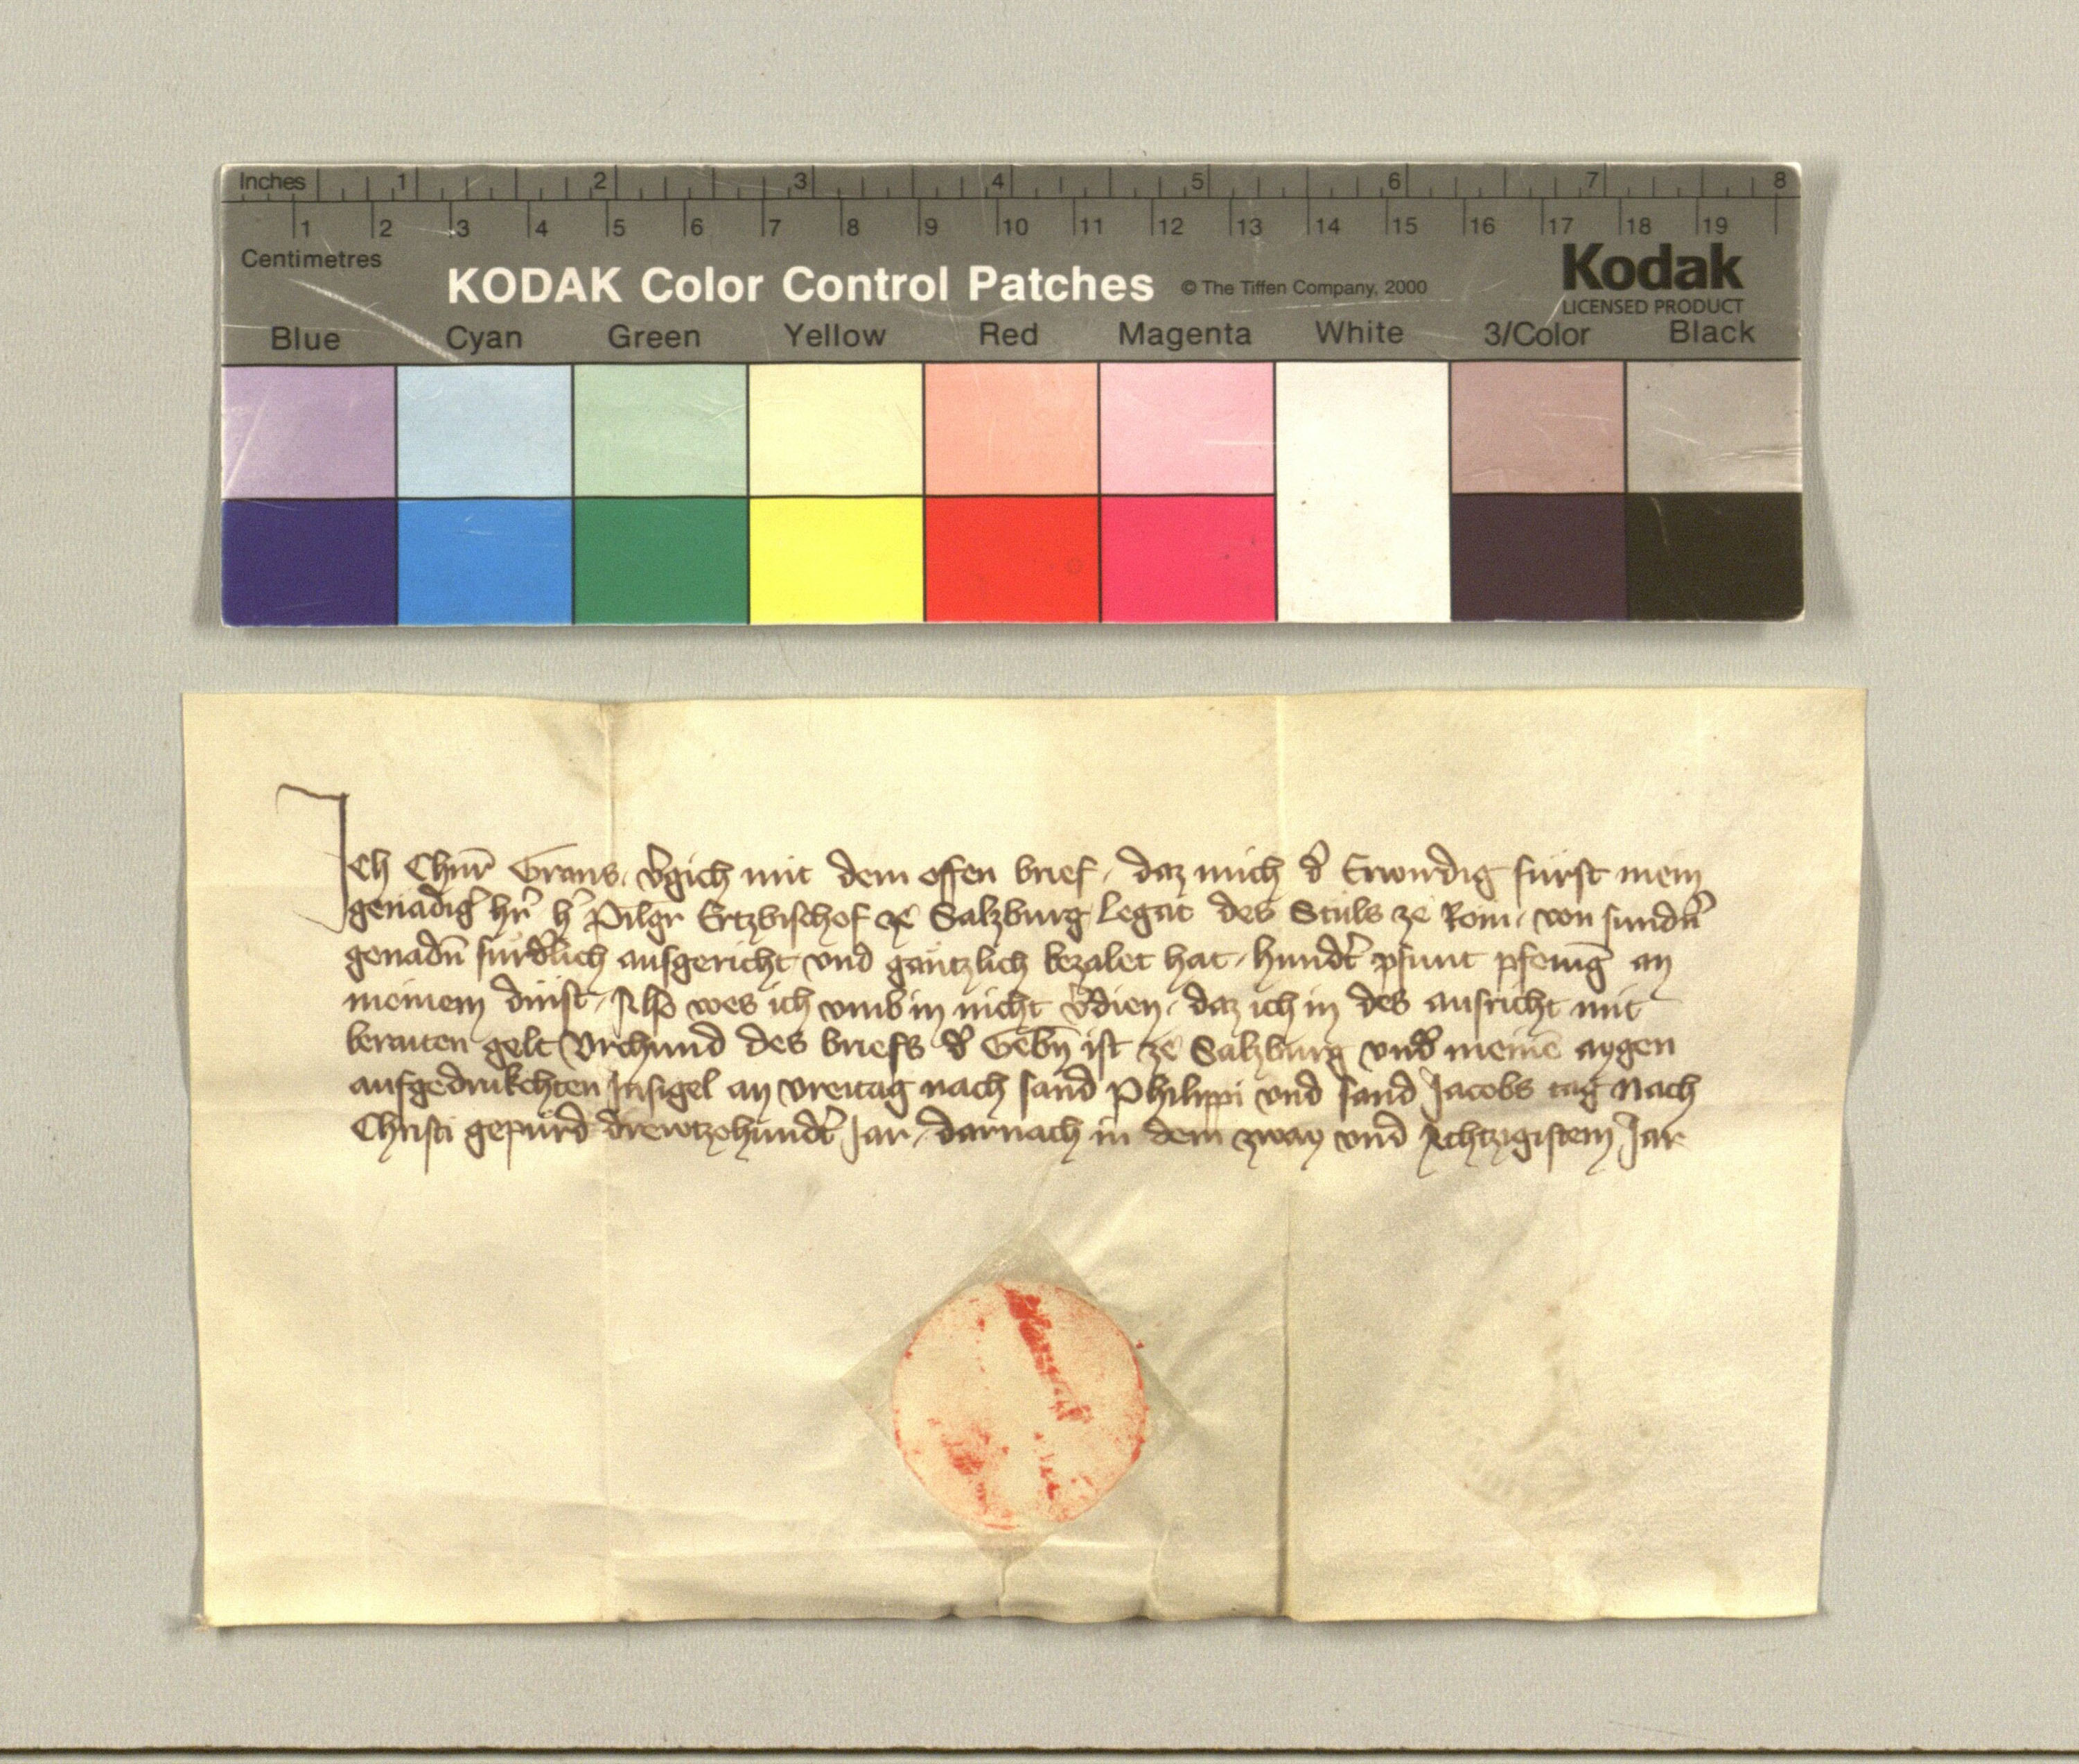 Inches 1 2 3 4 5 6 7 8
1 2 3 4 5 6 7 8 9 10 11 12 13 14 15 16 17 18 19
Centimetres
KODAK Color Control Patches © The Tiffen Company, 2000 Kodak
LICENSED PRODUCT
Blue Cyan Green Yellow Red Magenta White 3/Color Black
Ich Chunr̄ Grans, v̾gich mit dem offen brief, daz mich d̾ Erwirdig fürst mein
genädig̾ hr̾ h̾ Pilgr̄ Ertzbischof ze Salzburg Legat des Stuls ze Rom, von sundn̾
genadn̄ fürd̾lich ausgericht vnd gäntzlich bezalet hat, hundt̾ pfunt pfeniḡ an
meinem dinst, Also wes ich vmb in nicht v̾dien, daz ich in des ausricht mit
beraiten gelt Vrchund des briefs d̾ Gebn̄ ist ze Salzburg vnd̾ meinē aygen
aufgedrukchten Insigel an vreitag nach sand Philippi vnd sand Jacobs tag Nach
Christi gepürd drewtzehundt̾ Jar, darnach in dem zway vnd Achtzigistem Jar